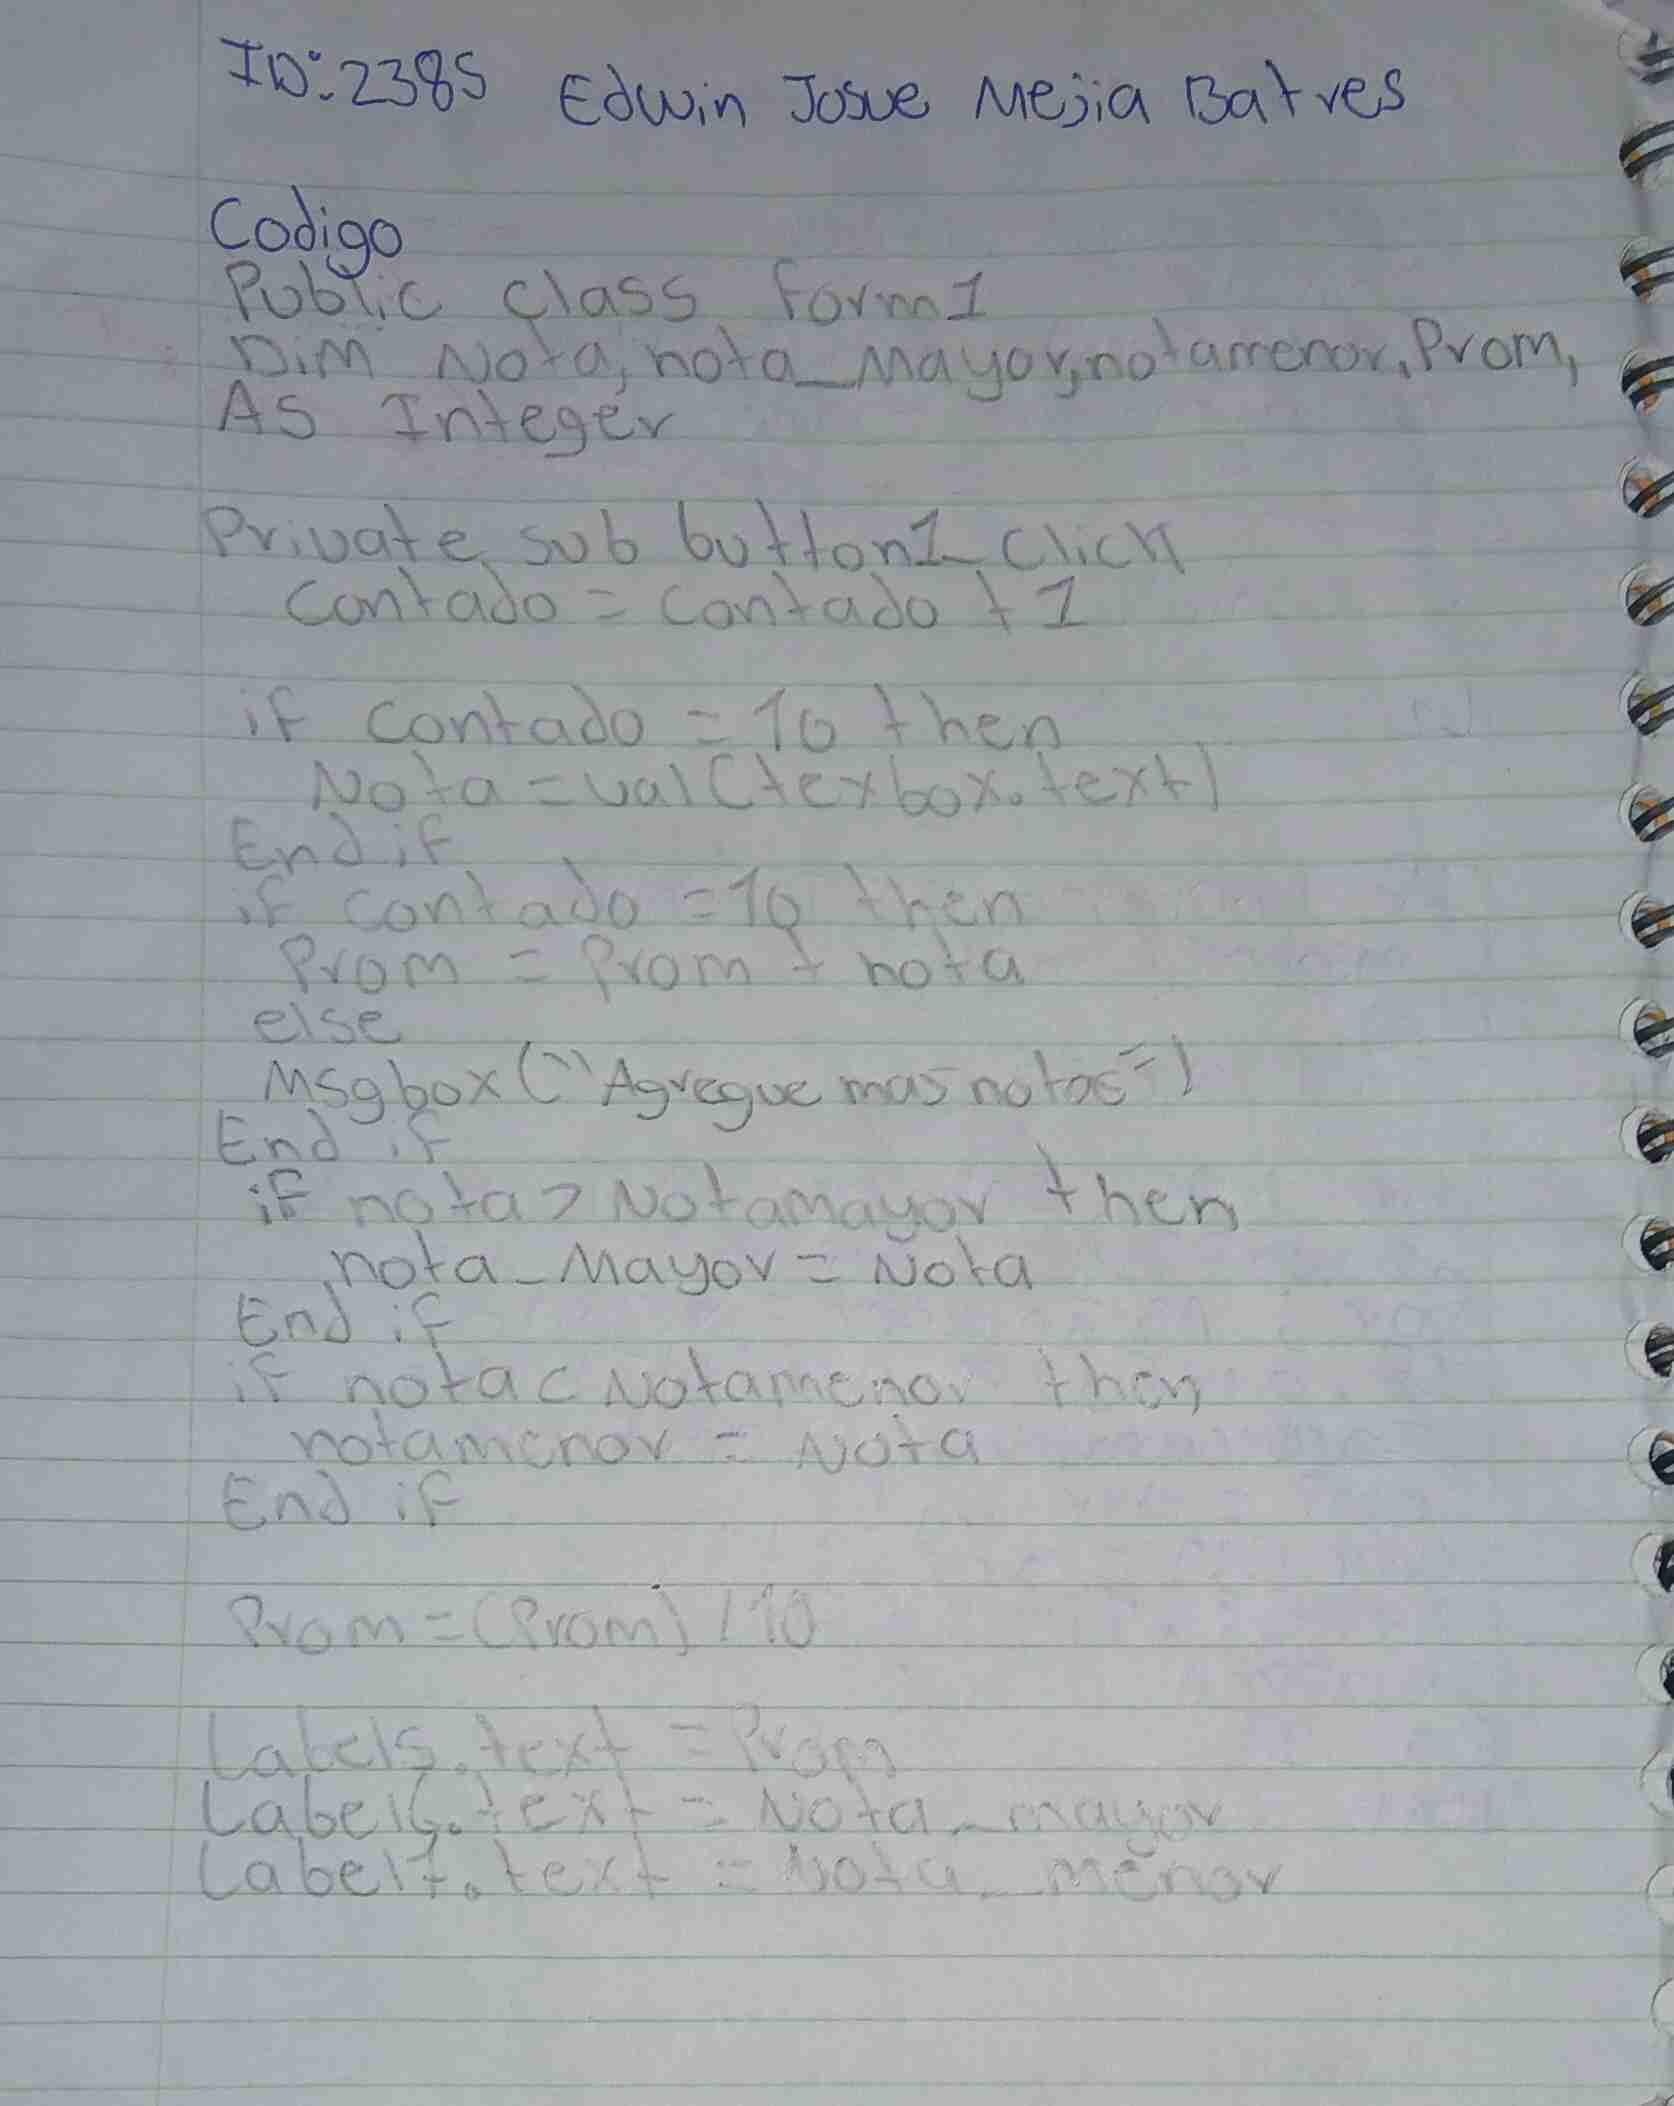 ID: 2385 Edwin Josue Mejia Batres
Codigo
Public class form1
Dim Nota, nota_Mayor, notamenor, Prom,
As Integer
Private sub button1_Click
Contado = Contado + 1
if contado = 10 then
Nota = val(texbox.text)
End if
if contado = 10 then
Prom = Prom + nota
else
Msgbox ("Agregue mas notas")
End if
if nota > Notamayor then
nota_Mayor = Nota
End if
if nota < Notamenor then
notamenor = Nota
End if
Prom = (Prom) / 10
Label5.text = Prom
Label6.text = Nota_mayor
Label7.text = Nota_menor